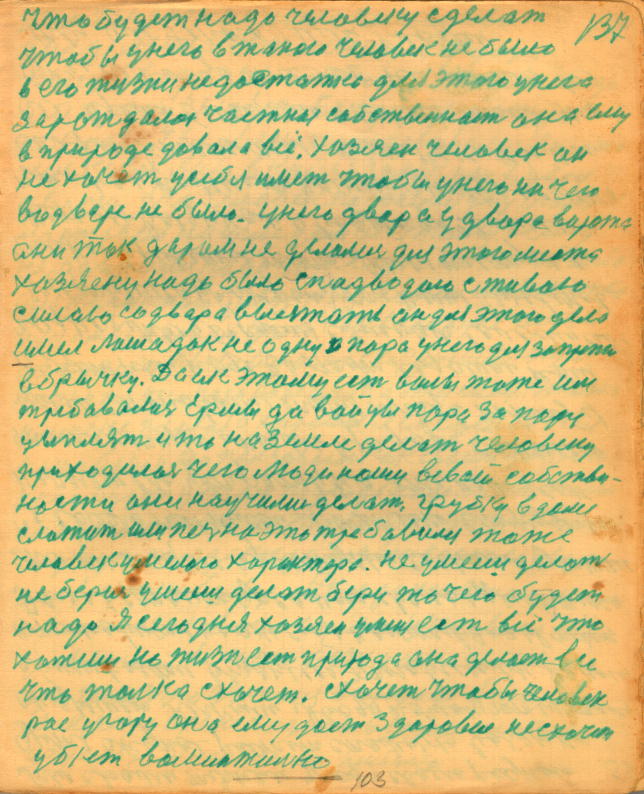 137
что будет надо человеку сделат
чтобы унего в такого человек не было
в его жизни недостатка для этого унего
зараждалас частная собственност она ему
в природе довала всё. хозяен человек он
не хочет усебя имет чтобы унего ни чего
водворе не было. унего двор а у двора варота
они так даром не делалис для этого места
хозяену надо было спадводою сживою
силаю содвора выезжат он для этого дела
имел Лошадок не одну а пара унего для запрежки
в бричку. Да ик этому ест валы тоже им
требавалис Ермы да войцы пара за пару
цеплят что на земле делат человеку
приходилос чего люди наши всвоей собствен-
ности они научилис делат. грубку в доме
сложит или печ на это требавался тоже
человек умелого характера. не умеиш делат
не берис умееш делат бери то чего будет
надо Я сегодня хозяен уменя ест всё что
хотиш но жизн ест природа она делает все
что толка схочет. схочет чтобы человек
рас угору она ему дает здоровие несхочет
убъет вомнательно
103